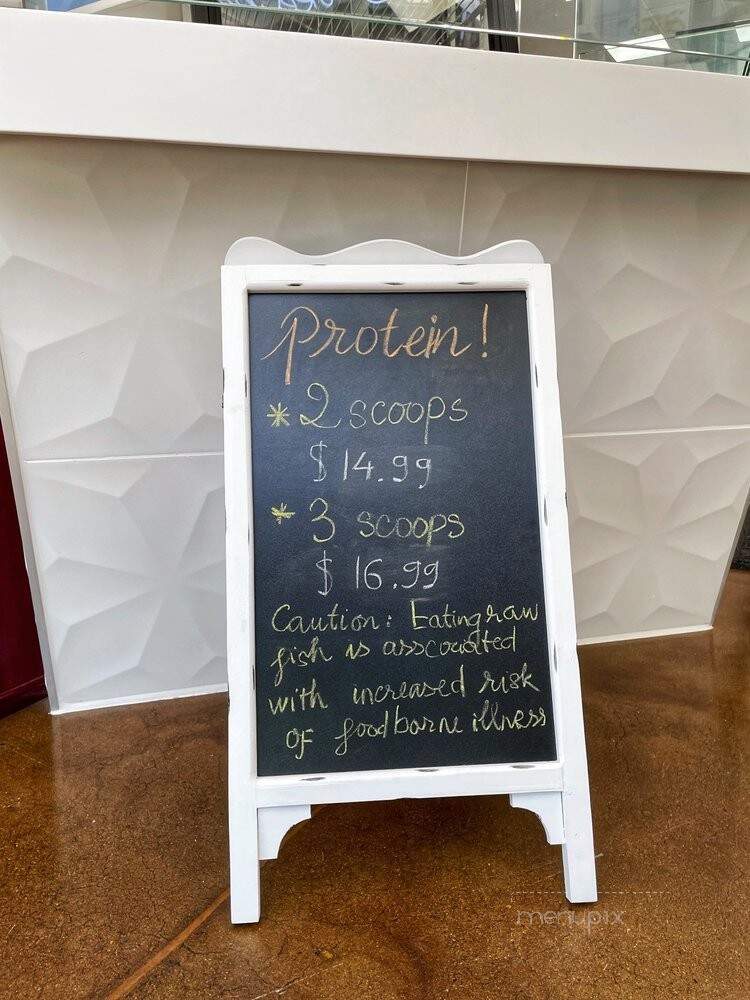 Protein!
* 2 scoops
$ 14.99
* 3 scoops
$ 16.99
Caution: Eating raw
fish is asscowated
with increased risk
of foodborne illness
menupix